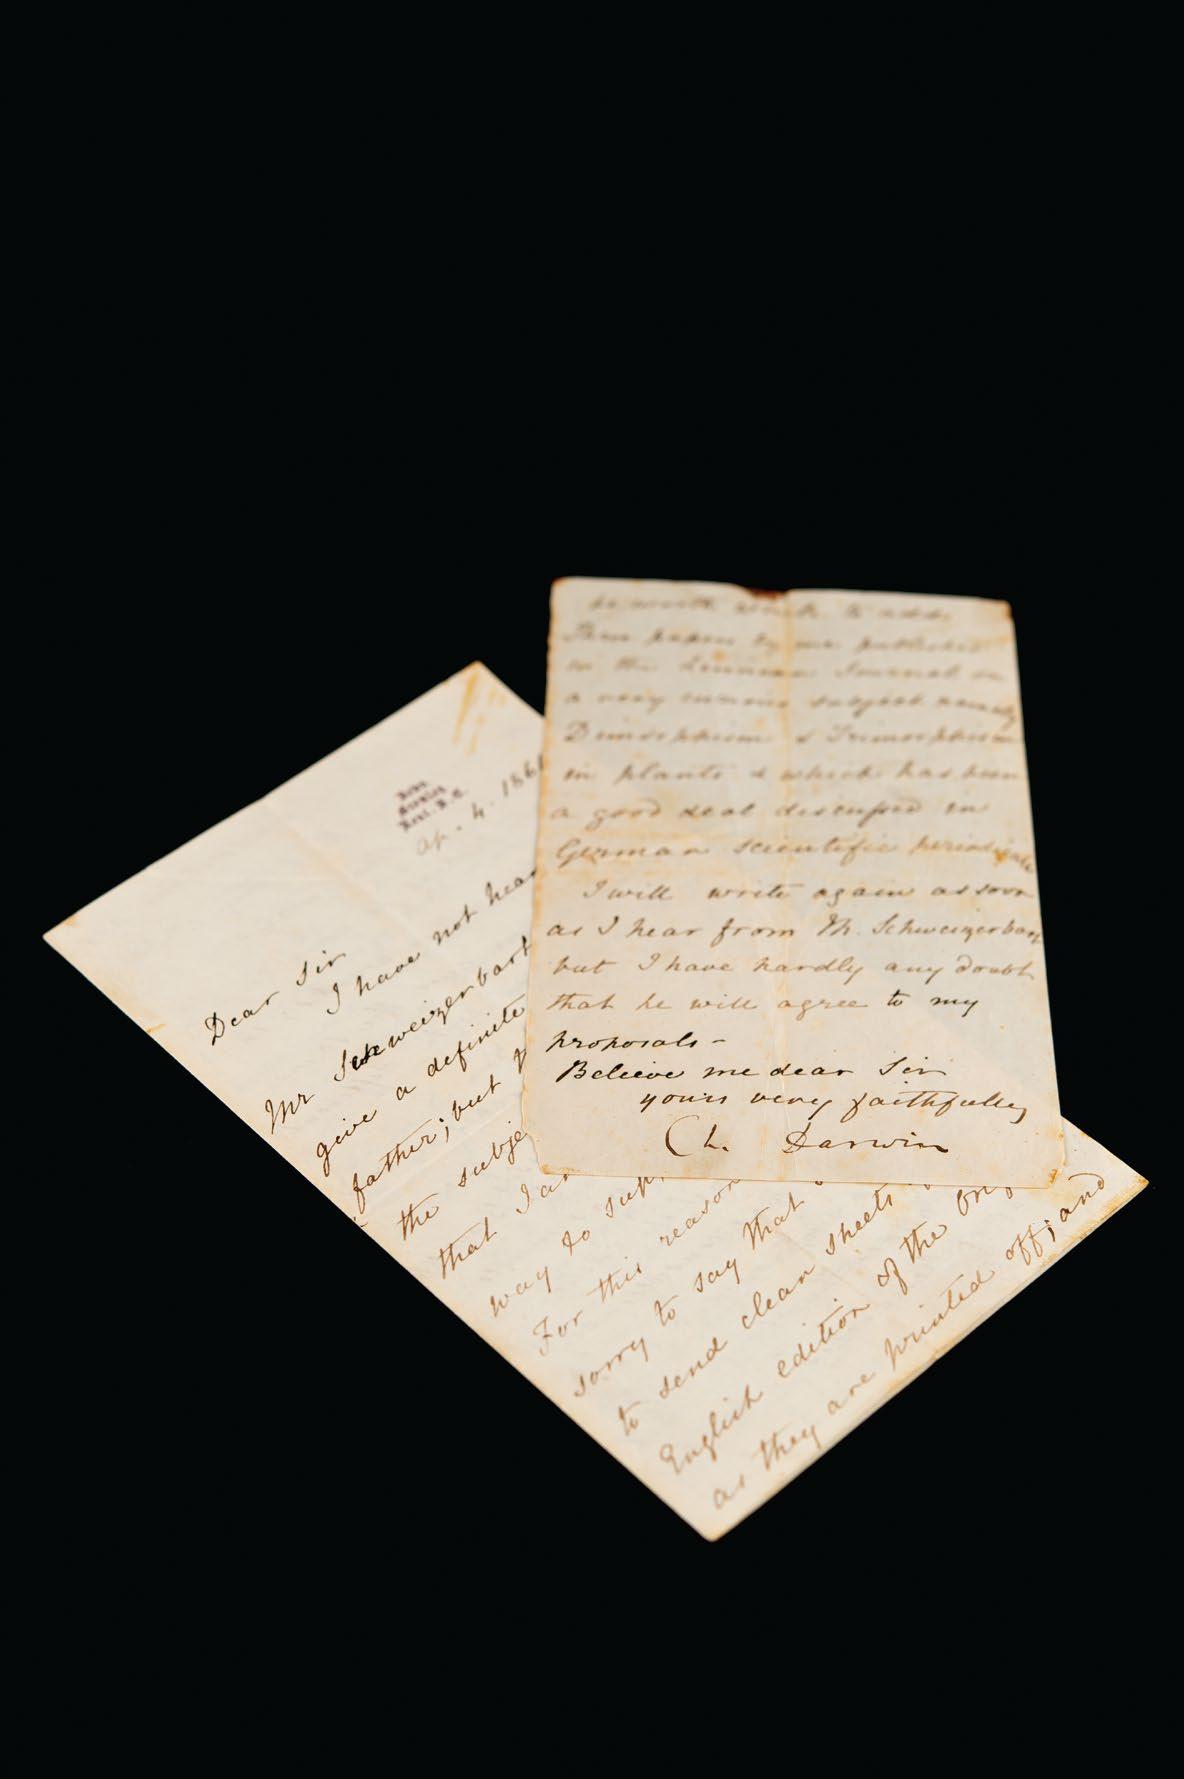 Down.
Bromley.
Kent. S.E.
Ap. 4. 186
Dear Sir
I have not hear
Mr Schweizerbart
give a definite
father; but
the subje
that I a
way to sup
For this reason
sorry to say that
to send clean sheets
English edition of the
as they are printed off; and
be worth while to add
Three papers by me published
in the Linnean Journal on
a very curious subject namely
Dimorphism & Trimorphism
in plants & which has been
a good deal discussed in
German scientific periodicals
I will write again as soon
as I hear from Mr. Schweizerbart
but I have hardly any doubt
that he will agree to my
proposals-
Believe me dear Sir
yours very faithfully
Ch. Darwin